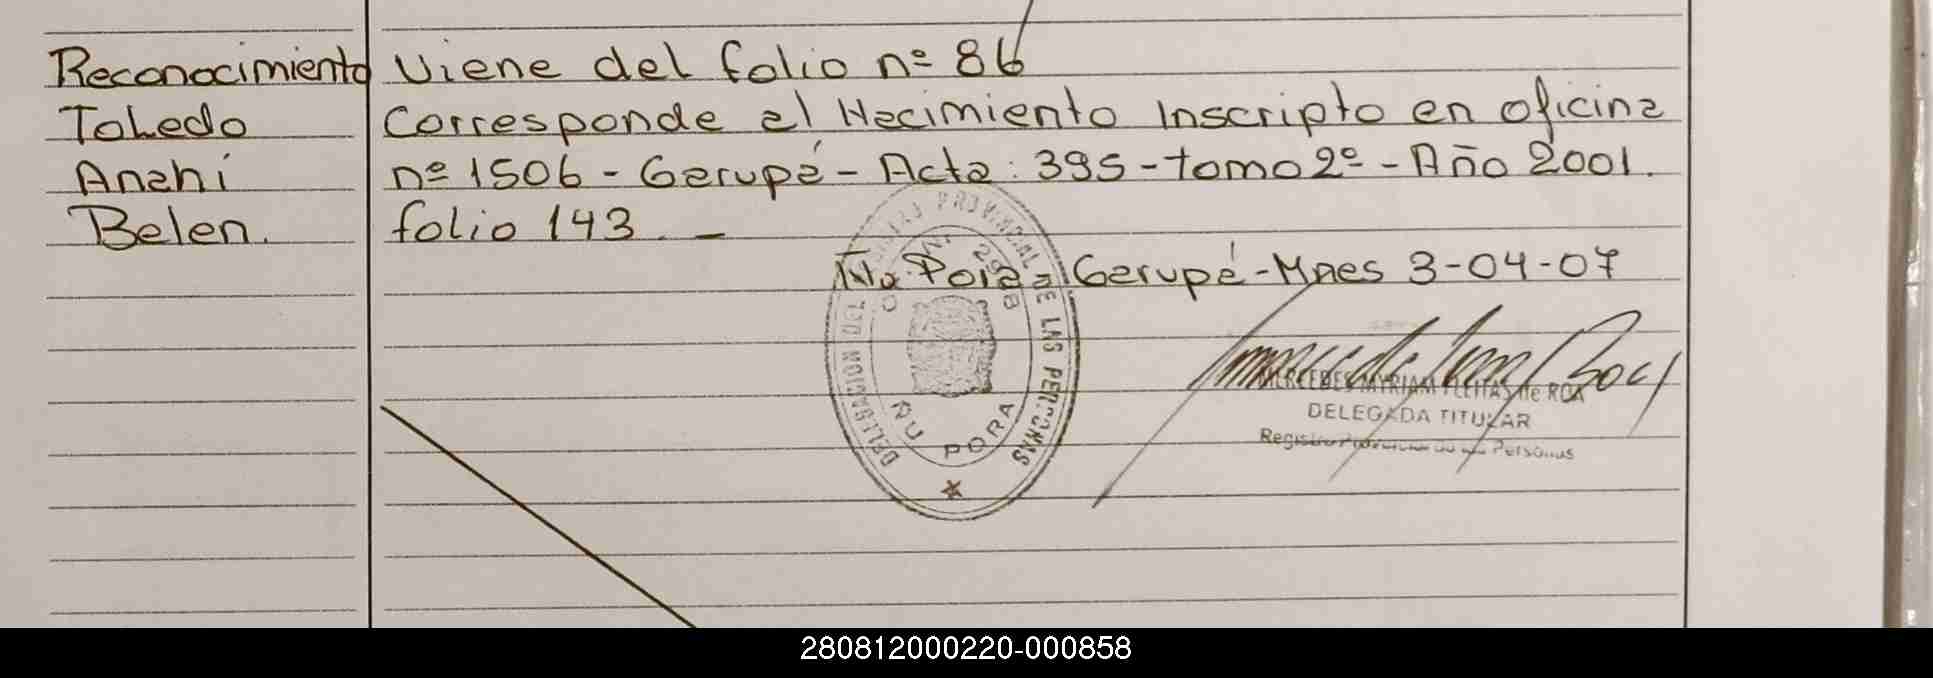 Reconocimiento Viene del folio nº 86
Toledo Corresponde al Nacimiento Inscripto en oficina
Anahí nº 1506 - Garupá - Acta: 395 - tomo 2º - Año 2001.
Belen. folio 143. -
Ñu Porá - Garupá - Mnes 3-04-07
DELEGACION DEL REGISTRO PROVINCIAL DE LAS PERSONAS
ÑU PORA
MERCEDES MYRIAM FLEITAS de ROA
DELEGADA TITULAR
Registro Provincial de las Personas
280812000220-000858